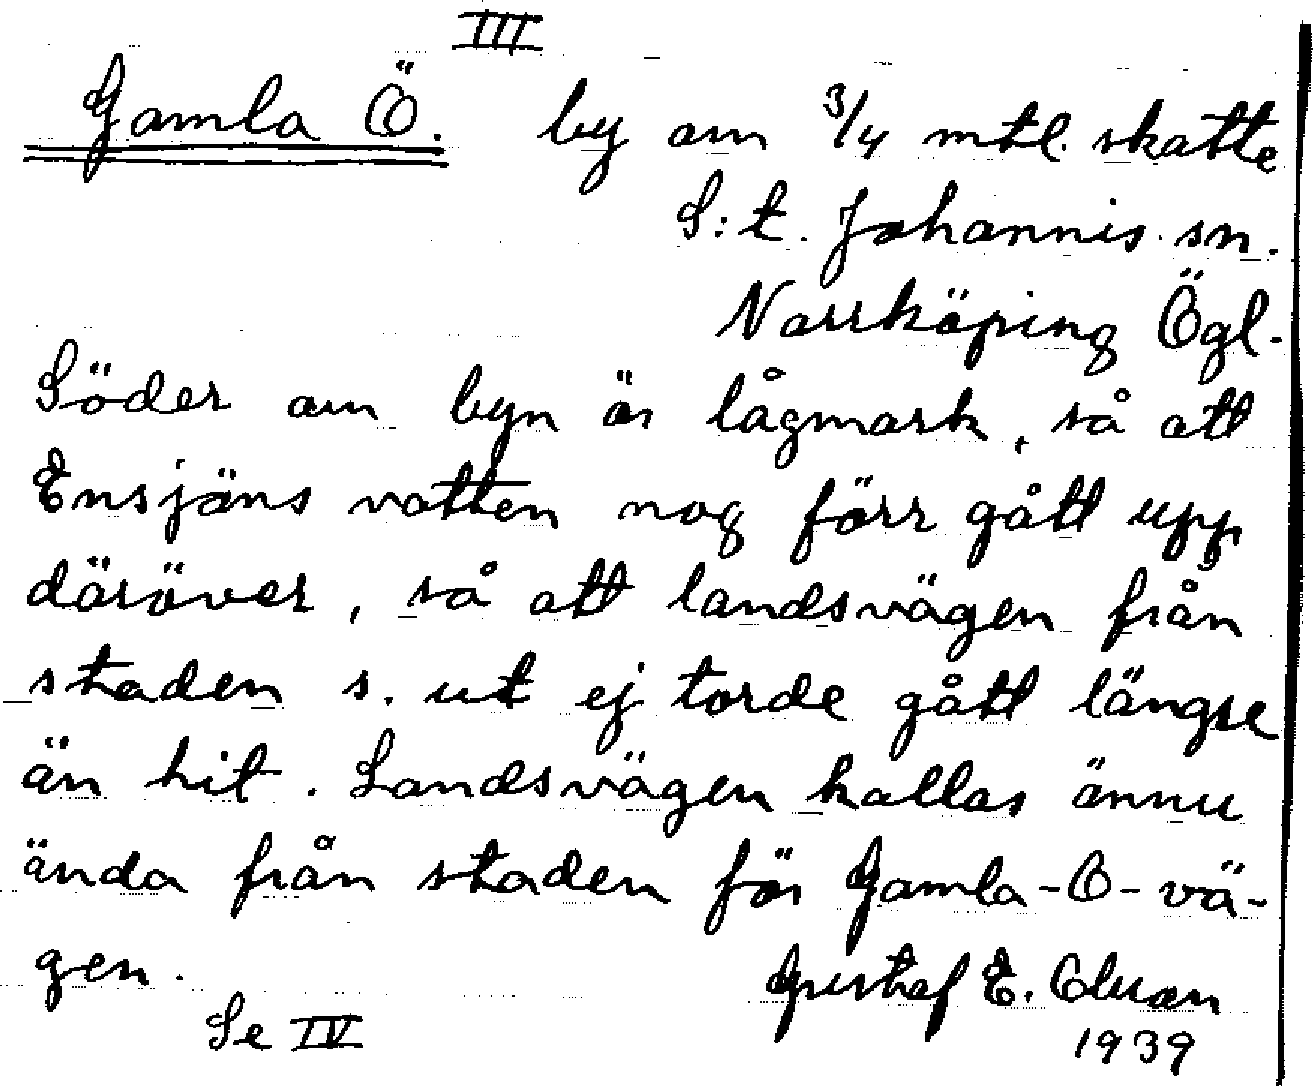 III
Gamla Ö. by om 3/4 mtl. skatte
S:t. Johannis sn.
Norrköping Ögl.
Söder om byn är lågmark, så att
Ensjöns vatten nog förr gått upp
däröver, så att landsvägen från
staden s. ut ej torde gått längre
än hit. Landsvägen kallas ännu
ända från staden för Gamla-Ö-vä-
gen.
Gustaf E.
Se IV
1939